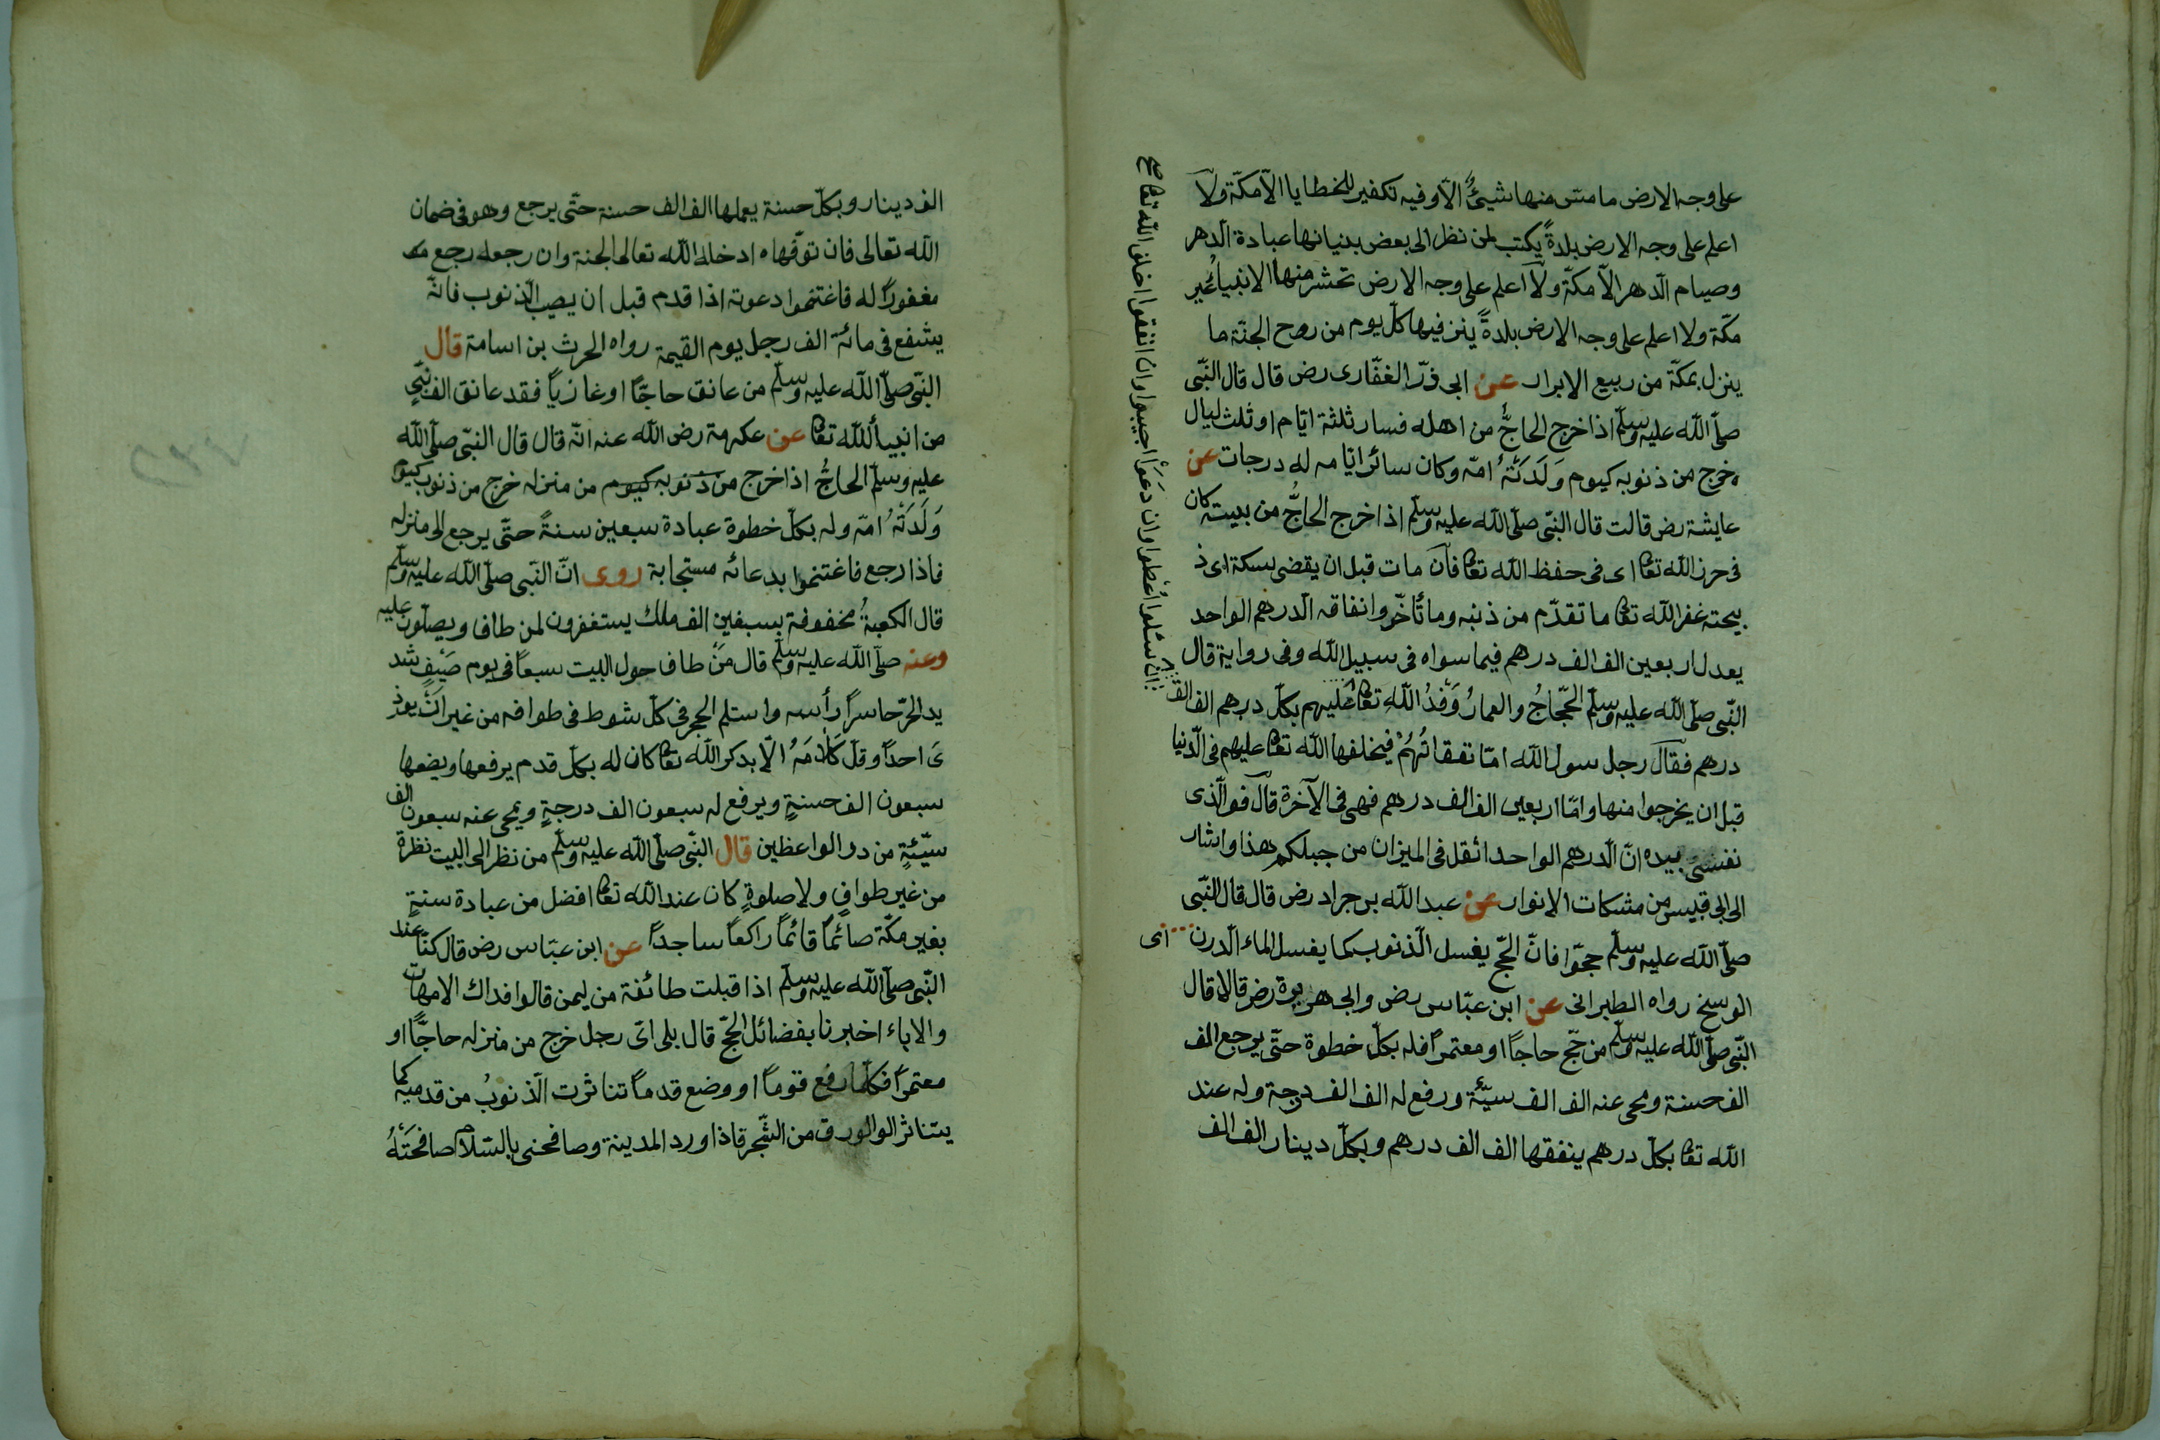 على وجه الارض ما مسّ منها شيئٌ الّا وفيه تكفير للخطايا الّا مكّة ولا
اعلم على وجه الارض بلدةً يكتب لمن نظر الى بعض بنيانها عبادة الدّهر
وصيام الدّهر الّا مكّة ولا اعلم على وجه الارض تحشر منها الانبياء غير
مكّة ولا اعلم على وجه الارض بلدةً ينزل فيها كلّ يوم من روح الجنّة ما
ينزل بمكّة من ربيع الابرار عن ابى ذرّ الغفّارى رض قال قال النّبى
صلّى اللّه عليه وسلّم اذا خرج الحاجُّ من اهله فسار ثلثة ايّام او ثلث ليال
خرج من ذنوبه كيوم وَلَدَتْهُ امّه وكان سائر ايّامه له درجات عن
عايشة رض قالت قال النّبى صلّى اللّه عليه وسلّم اذا خرج الحاجُّ من بيته كان
فى حرز اللّه تعا اى فى حفظ اللّه تعا فان مات قبل ان يقضى نسكه اى ذ
بيحته غفر اللّه تعا ما تقدّم من ذنبه وما تأخّر وانفاقه الدّرهم الواحد
يعدل اربعين الف الف درهم فيما سواه فى سبيل اللّه وفى رواية قال
النّبى صلّى اللّه عليه وسلّم الحجّاجُ والعمارُ وَفْدُ اللّهِ تعا عليهم بكلّ درهم الف الف
درهم فقال رجل رسول اللّه امّا نفقاتُهُمْ فيخلفها اللّه تعا عليهم فى الدّنيا
قبل ان يخرجوا منها وامّا اربعين الف الف درهم فهى فى الآخرة قال فوالّذى
نفسى بيده انّ الدّرهم الواحد اثقل فى الميزان من جبلكم هذا واشار
الى ابى قبيس من مشكات الانوار عن عبد اللّه بن جراد رض قال قال النّبى
صلّى اللّه عليه وسلّم حجّوا فانّ الحجّ يغسل الذّنوب كما يغسل الماء الدّرن اى
الوسخ رواه الطبرانى عن ابن عبّاس رض وابى هريرة رض قالا قال
النّبى صلّى اللّه عليه وسلّم من حجّ حاجاً او معتمراً فله بكلّ خطوة حتّى يرجع الف
الف حسنة ومحى عنه الف الف سيّئة ورفع له الف الف درجة وله عند
اللّه تعا بكلّ درهم ينفقها الف الف درهم وبكلّ دينار الف الف
ان سئلوا اُعْطوا وان دَعَوْا اجيبوا وان انفقوا اخلف اللّه تعا
الف دينار وبكلّ حسنة يعملها الف الف حسنة حتّى يرجع وهو فى ضمان
اللّه تعالى فان توفّهاه ادخله اللّه تعالى الجنة وان رجعه رجع
مغفوراً له فاغتنموا دعوته اذا قدم قبل ان يصيب الذّنوب فانّه
يشفع فى مائة الف رجل يوم القيمة رواه الحرث بن اسامة قال
النّبى صلّى اللّه عليه وسلّم من عانق حاجّاً او غازياً فقد عانق الف نبىّ
من انبياء اللّه تعا عن عكرمة رض اللّه عنه انّه قال قال النبّى صلّى اللّه
عليه وسلّم الحاجُّ اذا خرج من ذنوبه كيوم من منزله خرج من ذنوبه كيوم
وَلَدَتْهُ امّه وله بكلّ خطوة عبادة سبعين سنةً حتّى يرجع الى منزله
فاذا رجع فاغتنموا بدعائه مستجابة روى انّ النّبى صلّى اللّه عليه وسلّم
قال الكعبةُ محفوفة بسبعين الف ملك يستغفرون لمن طاف ويصلّون عليه
وعنه صلّى اللّه عليه وسلّم قال مَنْ طاف حول البيت سبعاً فى يوم صَيْفٍ شد
يد الحرّ حاسراً رأسه واستلم الحجر فى كلّ شوط فى طوافه من غير انْ يوذ
ىَ احداً وقلّ كلامَهُ الّا بذكر اللّه تعا كان له بكلّ قدم يرفعها ويضعها
سبعون الف حسنةٍ ويرفع له سبعون الف درجةٍ ويمحى عنه سبعون الف
سيّئةٍ من در الواعظين قال النّبى صلّى اللّه عليه وسلّم من نظر الى البيت نظرة
من غير طوافٍ ولا صلوةٍ كان عند اللّه تعا افضل من عبادة سنةٍ
بغير مكّة صائماً قائماً راكعاً ساجداً عن ابن عبّاس رض قال كنّا عند
النّبى صلّى اللّه عليه وسلّم اذا قبلت طائفة من ليمن قالوا فداك الامهات
والاباء اخبرنا بفضائل الحجّ قال بلى اىّ رجل خرج من منزله حاجّاً او
معتمراً فكلّما رفع قوماً او وضع قدماً تناثرت الذّنوبُ من قدميه كما
يتناثر الوالورق من الشّجر فاذا ورد المدينة وصافحنى بالسّلام صافحَتْهُ